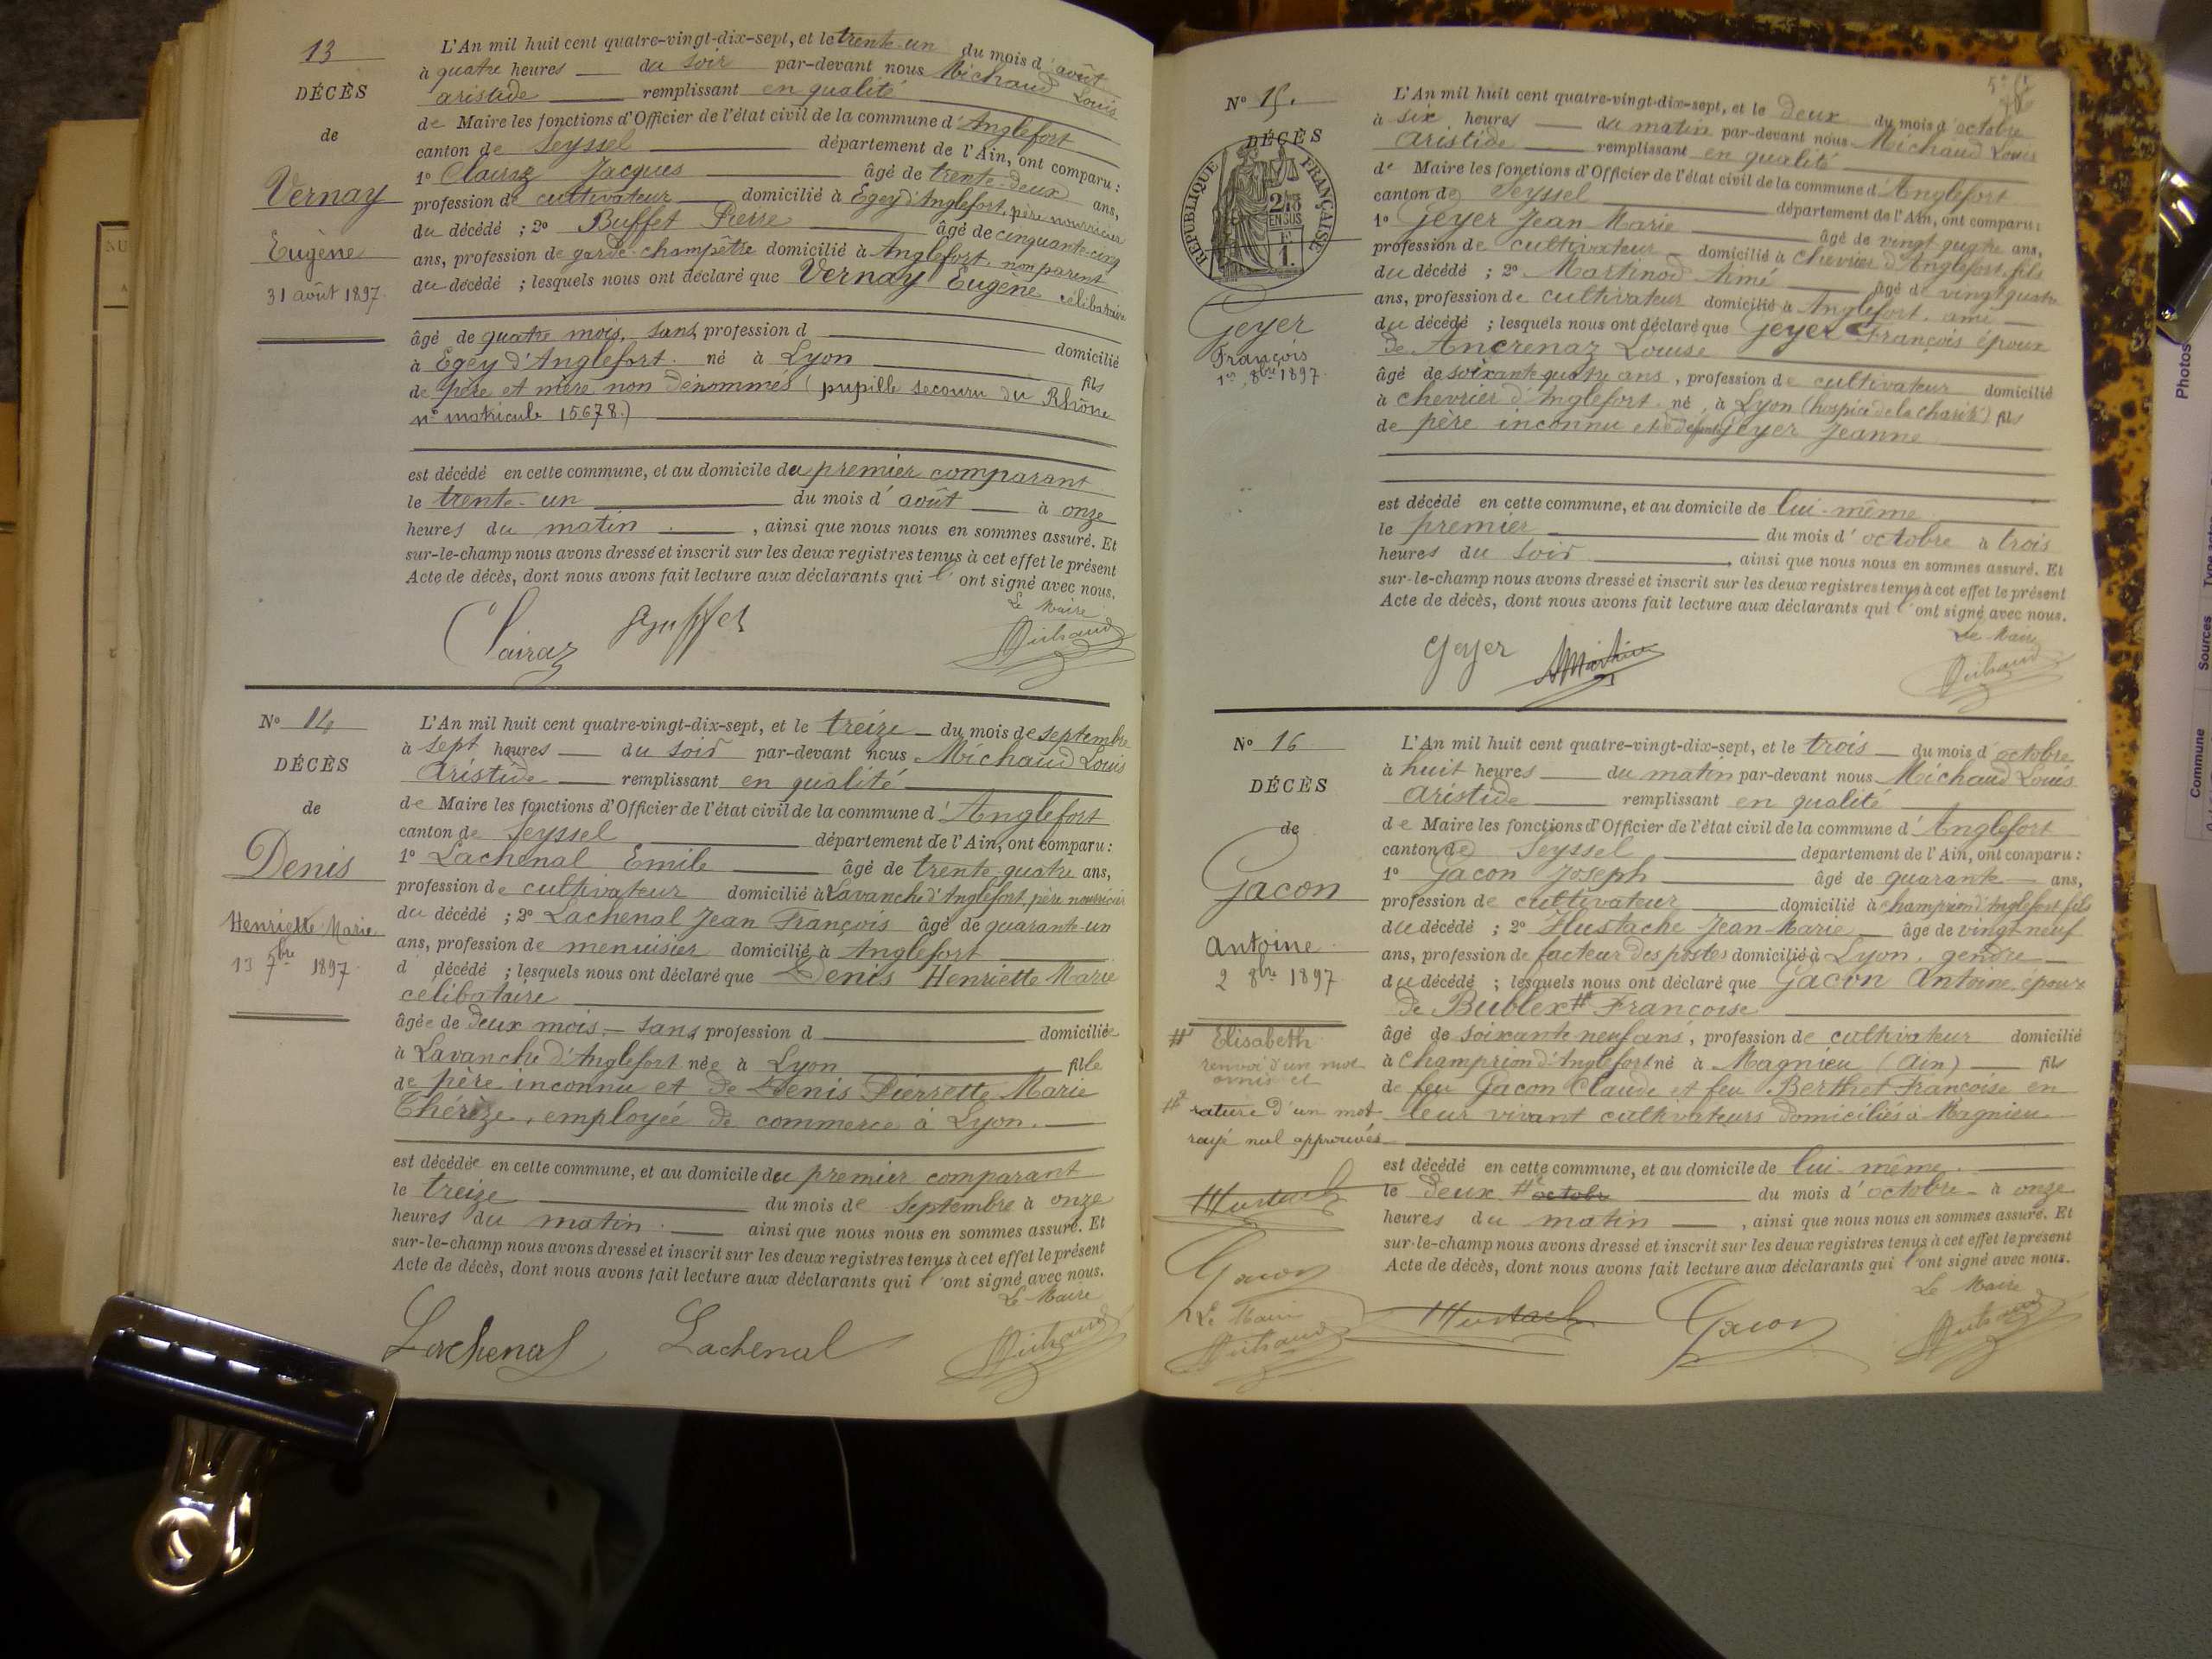 13
DÉCÈS
de
Vernay
Eugène
31 août 1897.
L'An mil huit cent quatre-vingt-dix-sept, et le trente-un du mois d'août
à quatre heures du soir par-devant nous Michaud Louis
aristide remplissant en qualité
de Maire les fonctions d'Officier de l'état civil de la commune d'Anglefort
canton de Seyssel département de l'Ain, ont comparu :
1º Clairaz Jacques âgé de trente-deux ans,
profession de cultivateur domicilié à Egey d'Anglefort, père nourricier
du décédé ; 2º Buffet Pierre âgé de cinquante-cinq
ans, profession de garde-champêtre domicilié à Anglefort, non parent
du décédé ; lesquels nous ont déclaré que Vernay Eugène célibataire
âgé de quatre mois, sans profession d domicilié
à Egey d'Anglefort. né à Lyon fils
de père et mère non dénommés (pupille secouru du Rhône
nº matricule 15678.)
est décédé en cette commune, et au domicile du premier comparant
le trente-un du mois d'août à onze
heures du matin , ainsi que nous nous en sommes assuré. Et
sur-le-champ nous avons dressé et inscrit sur les deux registres tenus à cet effet le présent
Acte de décès, dont nous avons fait lecture aux déclarants qui l'ont signé avec nous.
Le Maire
Clairaz Buffet Michaud
Nº 14
DÉCÈS
de
Denis
Henriette Marie
13 7bre 1897.
L'An mil huit cent quatre-vingt-dix-sept, et le treize du mois de septembre
à sept heures du soir par-devant nous Michaud Louis
Aristide remplissant en qualité
de Maire les fonctions d'Officier de l'état civil de la commune d'Anglefort
canton de Seyssel département de l'Ain, ont comparu :
1º Lachenal Emile âgé de trente quatre ans,
profession de cultivateur domicilié à Lavanche d'Anglefort, père nourricier
du décédé ; 2º Lachenal Jean François âgé de quarante-un
ans, profession de menuisier domicilié à Anglefort
d décédé ; lesquels nous ont déclaré que Denis Henriette Marie
célibataire
âgée de deux mois, sans profession d domiciliée
à Lavanche d'Anglefort née à Lyon fille
de père inconnu et de Denis Pierrette Marie
Thérèze, employée de commerce à Lyon.
est décédée en cette commune, et au domicile du premier comparant
le treize du mois de septembre à onze
heures du matin. ainsi que nous nous en sommes assuré. Et
sur-le-champ nous avons dressé et inscrit sur les deux registres tenus à cet effet le présent
Acte de décès, dont nous avons fait lecture aux déclarants qui l'ont signé avec nous.
Le Maire
Lachenal Lachenal Michaud
Nº 15.
DÉCÈS
RÉPUBLIQUE FRANÇAISE
EN SUS
Geyer
François
1er 8bre 1897.
L'An mil huit cent quatre-vingt-dix-sept, et le deux du mois d'octobre
à six heures du matin par-devant nous Michaud Louis
Aristide remplissant en qualité
de Maire les fonctions d'Officier de l'état civil de la commune d'Anglefort
canton de Seyssel département de l'Ain, ont comparu :
1º Geyer Jean Marie âgé de vingt-quatre ans,
profession de cultivateur domicilié à Chevrier d'Anglefort, fils
du décédé ; 2º Martinod Aimé âgé de vingt quatre
ans, profession de cultivateur domicilié à Anglefort. ami
du décédé ; lesquels nous ont déclaré que Geyer François époux
de Ancrenaz Louise
âgé de soixante quatre ans, profession de cultivateur domicilié
à Chevrier d'Anglefort. né à Lyon (hospice de la charité) fils
de père inconnu et de défunte Geyer Jeanne
est décédé en cette commune, et au domicile de lui-même
le premier du mois d'octobre à trois
heures du soir , ainsi que nous nous en sommes assuré. Et
sur-le-champ nous avons dressé et inscrit sur les deux registres tenus à cet effet le présent
Acte de décès, dont nous avons fait lecture aux déclarants qui l'ont signé avec nous.
Le Maire
Geyer Michaud
Nº 16
DÉCÈS
de
Gacon
Antoine
2 8bre 1897.
L'An mil huit cent quatre-vingt-dix-sept, et le trois du mois d'octobre
à huit heures du matin par-devant nous Michaud Louis
Aristide remplissant en qualité
de Maire les fonctions d'Officier de l'état civil de la commune d'Anglefort
canton de Seyssel département de l'Ain, ont comparu :
1º Gacon Joseph âgé de quarante ans,
profession de cultivateur domicilié à Champrion d'Anglefort fils
du décédé ; 2º Hustache Jean-Marie âgé de vingt-neuf
ans, profession de facteur des postes domicilié à Lyon, gendre
du décédé ; lesquels nous ont déclaré que Gacon Antoine, époux
de Bublex # Françoise
# Elisabeth
renvoi d'un mot
omis et
#² rature d'un mot
rayé nul approuvés
âgé de soixante neuf ans, profession de cultivateur domicilié
à Champrion d'Anglefort né à Magnieu (Ain) fils
de feu Gacon Claude et feu Berthet Françoise en
leur vivant cultivateurs domiciliés à Magnieu
est décédé en cette commune, et au domicile de lui-même.
le deux #² octobre du mois d'octobre à onze
heures du matin , ainsi que nous nous en sommes assuré. Et
sur-le-champ nous avons dressé et inscrit sur les deux registres tenus à cet effet le présent
Acte de décès, dont nous avons fait lecture aux déclarants qui l'ont signé avec nous.
Le Maire
Hustache
Gacon
Le Maire
Michaud
Hustache Gacon Michaud
Photos
Commune Sources